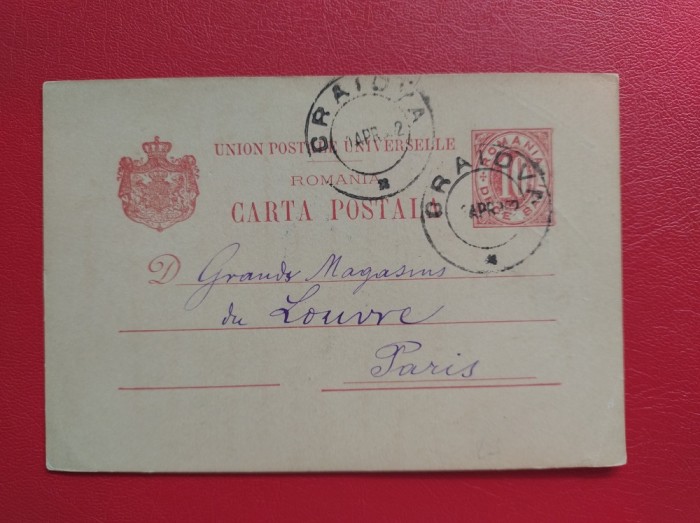 CRAIOVA
APR
UNION POSTALE UNIVERSELLE
ROMANIA
CARTA POSTALA
ROMANIA
10
BANI
CRAIOVA
APR
D Grands Magasins
du Louvre
Paris